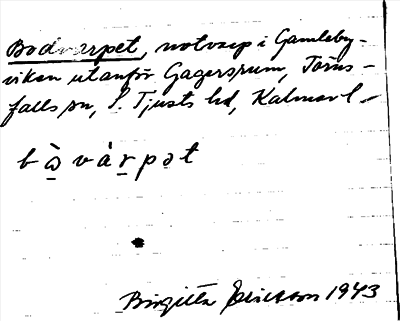 Bodvarpet, notvarp i Gamleby-
viken utanför Gagersrum, Törns-
falls sn, S. Tjusts hd, Kalmar l
b ò̱ v á ṟ p ə t
Birgitta Ericsson 1943